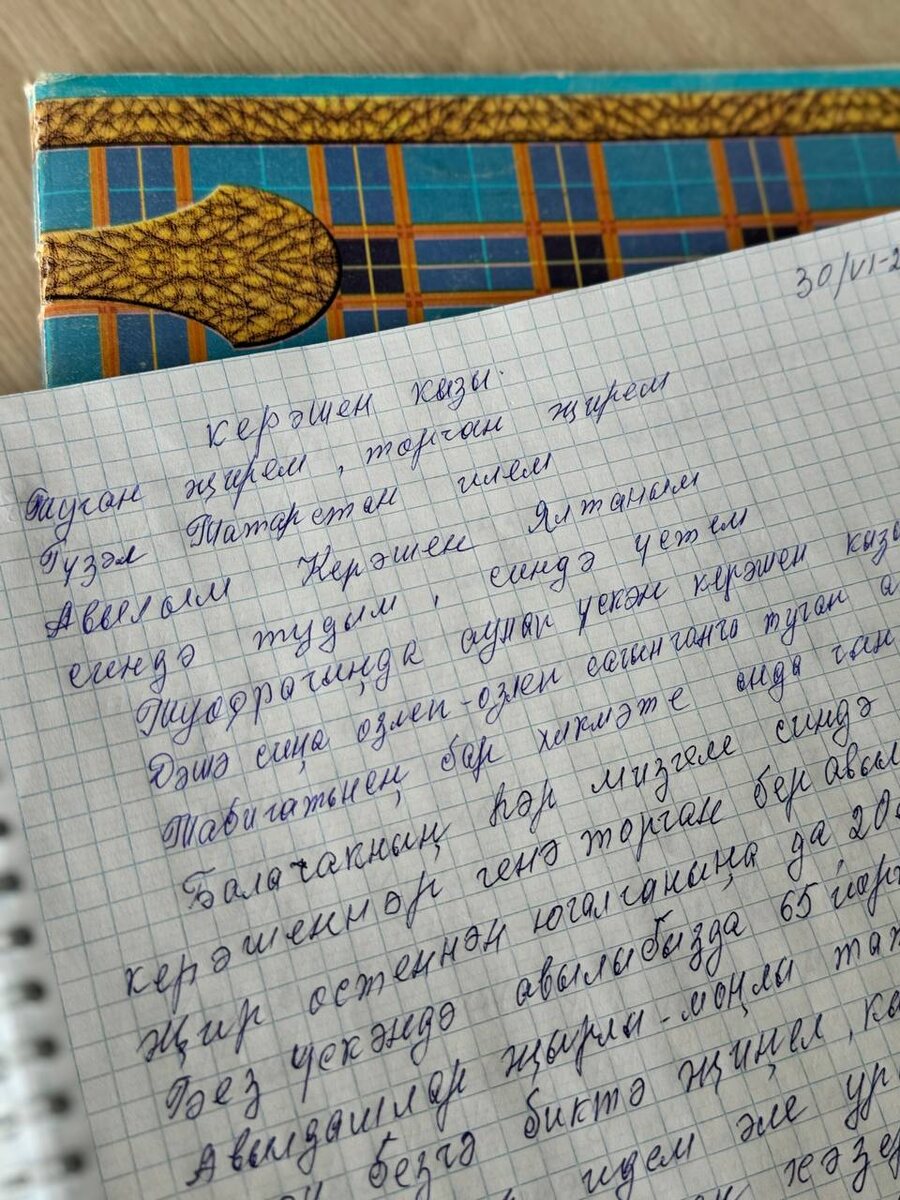 30/VI-2
Керәшен кызы.
Туган җирем, торган җирем
Гүзәл Татарстан илем
Авылым Керәшен Ялтаным
синдә тудым, синдә үстем
Туфрагыңда аунап үскән керәшен кызы
Дәшә сиңа өзлеп-өзлеп сагынганга туган а
Табигатьнең бар хикмәте анда чын
Балачакның һәр мизгеле синдә
керәшеннәр генә торган бер авыл
Җир өстеннән югалганыңа да 20
Без үскәндә авылыбызда 65 йорт
Авылдашлар җырлы-моңлы
безгә биктә җиңел, ка
идем әле ур
хәзер